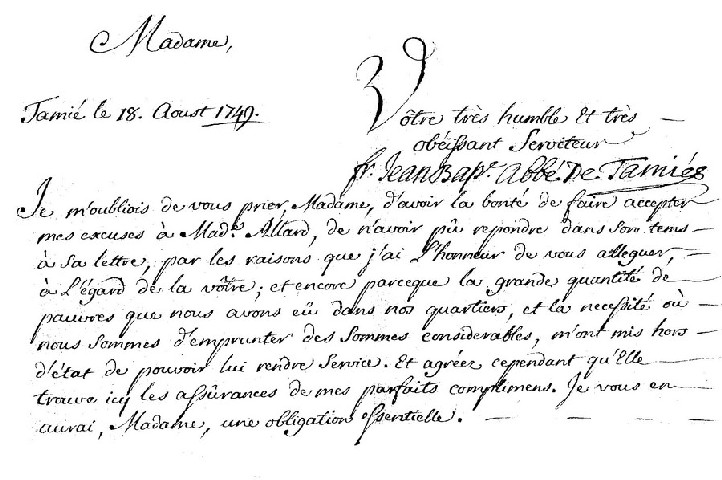 Madame,
Tamié le 18. Aoust 1749.
Vôtre très humble Et très
obéissant Serviteur
fr. Jean Bapt. Abbé De Tamiés
Je m'oubliois de vous prier, Madame, d'avoir la bonté de faire accepter
mes excuses à Mad.e Allard, de n'avoir pû repondre dans son tems
à sa lettre, par les raisons que j'ai l'honneur de vous alleguer,
à L'égard de la vôtre; et encore parceque la grande quantité de
pauvres que nous avons eû dans nos quartiers, et la necessité où
nous sommes d'emprunter des sommes considerables, m'ont mis hors
d'état de pouvoir lui rendre Service. Et agréez cependant qu'Elle
trouve icy les assûrances de mes parfaits complimens. Je vous en
aurai, Madame, une obligation essentielle.